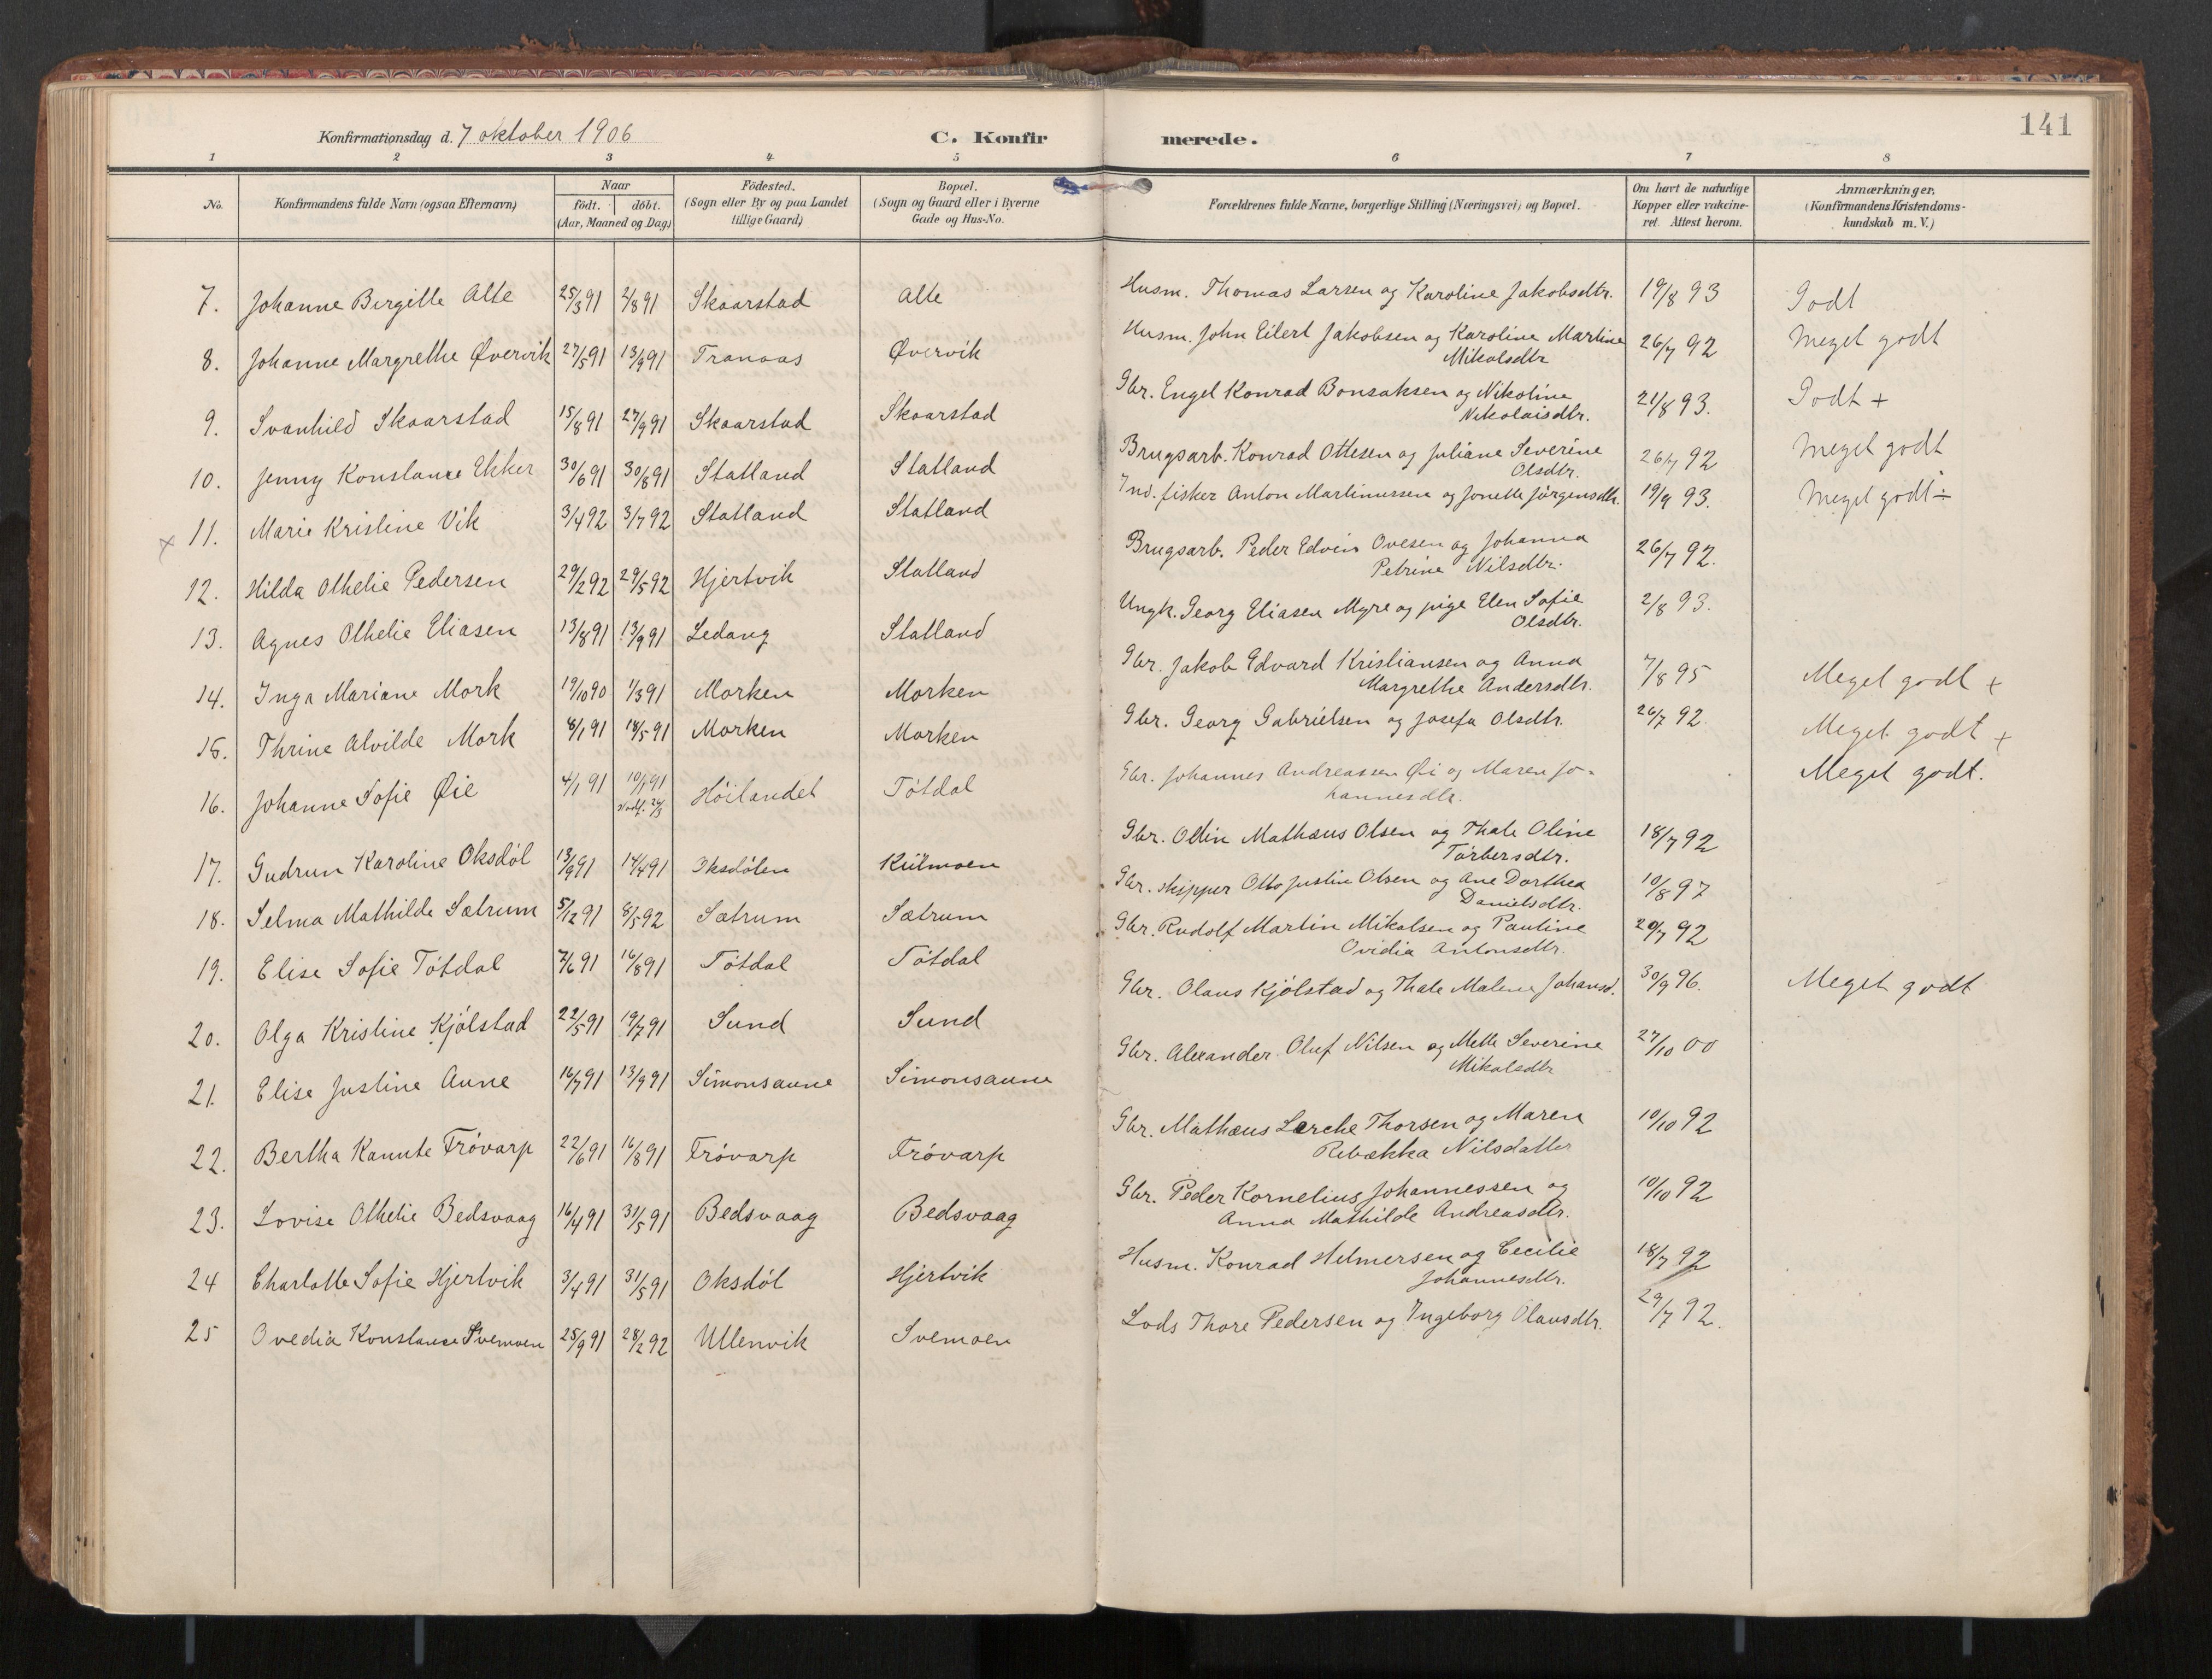 141
Konfirmationsdag d. 7 oktober 1906 C. Konfirmerede.
1 2 3 4 5 6 7 8
No. Konfirmandens fulde Navn (ogsaa Efternavn) Naar født. døbt. (Aar, Maaned og Dag) Fødested. (Sogn eller By og paa Landet tillige Gaard) Bopæl. (Sogn og Gaard eller i Byerne Gade og Hus-No. Forældrenes fulde Navne, borgerlige Stilling (Næringsvei) og Bopæl. Om havt de naturlige Kopper eller vakcineret. Attest herom. Anmærkninger. (Konfirmandens Kristendomskundskab m. V.)
7. Johanne Bergitte Alte 25/3 91 2/8 91 Skaarstad Alte Husm. Thomas Larsen og Karoline Jakobsdtr. 19/8 93 Godt
8. Johanne Margrethe Øvervik 27/5 91 13/9 91 Tranaas Øvervik Husm. John Eilert Jakobsen og Karoline Martine 26/7 92 Meget godt
Mikalsdtr
9. Svanhild Skaarstad 15/8 91 27/9 91 Skaarstad Skaarstad Gbr. Engel Konrad Bonsaksen og Nikoline 21/8 93. Godt +
Nikolaisdtr.
10. Jenny Konstance Ekker 30/6 91 30/8 91 Statland Statland Brugsarb. Konrad Ottesen og Juliane Severine 26/7 92 Meget godt
Olsdtr.
x 11. Marie Kristine Vik 3/4 92 3/7 92 Statland Statland Ind. fisker Anton Martinussen og Jonette Jørgensdtr. 19/9 93. Meget godt ÷
12. Hilda Othelie Pedersen 29/2 92 29/5 92 Hjertvik Statland Brugsarb. Peder Edvin Ovesen og Johanna 26/7 92.
Petrine Nilsdtr.
13. Agnes Othelie Eliasen 13/8 91 13/9 91 Ledang Statland Ungk. Georg Eliasen Myre og pige Elen Sofie 2/8 93.
Olsdtr.
14. Inga Mariane Mork 19/10 90 1/3 91 Morken Morken Gbr. Jakob Edvard Kristiansen og Anna 7/8 95 Meget godt +
Margrethe Andersdtr.
15. Thrine Alvilde Mork 8/1 91 18/5 91 Morken Morken Gbr. Georg Gabrielsen og Josefa Olsdtr. 26/7 92. Meget godt +
16. Johanne Sofie Øie 4/1 91 10/1 91 Høilandet Tøtdal Gbr. Johannes Andreassen Øi og Maren Jo- Meget godt.
hannesdtr.
17. Gudrun Karoline Oksdøl 13/9 91 14/4 91 Oksdølen Kiilmoen Gbr. Odin Mathæus Olsen og Thale Oline 18/7 92
Torbersdtr.
18. Selma Mathilde Sætrum 5/12 91 8/5 92 Sætrum Sætrum Gbr. skipper Otto Justin Olsen og Ane Dorthea 10/8 97
Danielsdtr.
19. Elise Sofie Tøtdal 7/6 91 16/8 91 Tøtdal Tøtdal Gbr. Rudolf Martin Mikalsen og Pauline 20/7 92
Ovidia Antonsdtr.
20. Olga Kristine Kjølstad 22/5 91 19/7 91 Sund Sund Gbr. Olaus Kjølstad og Thale Malene Johansd. 30/9 96. Meget godt
21. Elise Justine Aune 16/7 91 13/9 91 Simonsaune Simonsaune Gbr. Alexander Oluf Nilsen og Mette Severine 27/10 00
Mikalsdtr
22. Bertha Kanute Frøvarp 22/6 91 16/8 91 Frøvarp Frøvarp Gbr. Mathæus Lerche Thorsen og Maren 10/10 92
Rebækka Nilsdatter
23. Lovise Othelie Bedsvaag 16/4 91 31/5 91 Bedsvaag Bedsvaag Gbr. Peder Kornelius Johannessen og 10/10 92
Anna Mathilde Andreasdtr.
24 Charlotte Sofie Hjertvik 3/4 91 31/5 91 Oksdøl Hjertvik Husm. Konrad Hilmersen og Cecilie 18/7 92
Johannesdtr.
25 Ovedia Konstance Svemoen 25/9 91 28/2 92 Ullenvik Svemoen Lods Thore Pedersen og Ingeborg Olausdtr. 29/7 92.